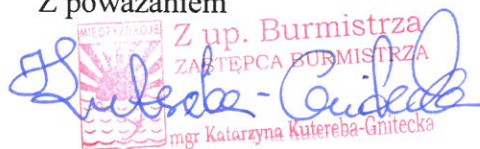 Z poważaniem
MIĘDZYZDROJE
Z up. Burmistrza
ZASTĘPCA BURMISTRZA
Kutereba-Gnitecka
mgr Katarzyna Kutereba-Gnitecka